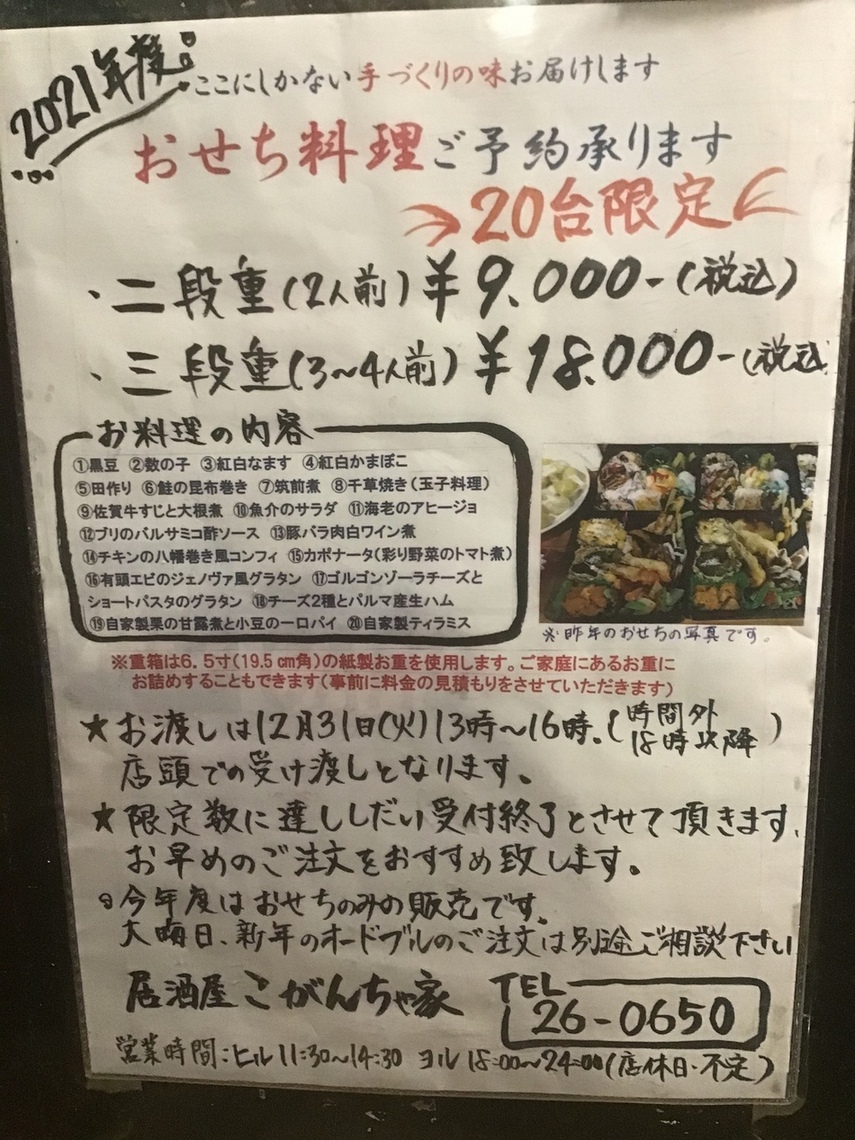 2021年度
ここにしかない手づくりの味お届けします
おせち料理ご予約承ります
20台限定
・二段重(2人前)¥9,000-(税込)
・三段重(3~4人前)¥18,000-(税込
お料理の内容
①黒豆 ②数の子 ③紅白なます ④紅白かまぼこ
⑤田作り ⑥鮭の昆布巻き ⑦筑前煮 ⑧千草焼き(玉子料理)
⑨佐賀牛すじと大根煮 ⑩魚介のサラダ ⑪海老のアヒージョ
⑫ブリのバルサミコ酢ソース ⑬豚バラ肉白ワイン煮
⑭チキンの八幡巻き風コンフィ ⑮カポナータ(彩り野菜のトマト煮)
⑯有頭エビのジェノヴァ風グラタン ⑰ゴルゴンゾーラチーズと
ショートパスタのグラタン ⑱チーズ2種とパルマ産生ハム
⑲自家製栗の甘露煮と小豆の一口パイ ⑳自家製ティラミス
※昨年のおせちの写真です。
※重箱は6.5寸(19.5㎝角)の紙製お重を使用します。ご家庭にあるお重に
お詰めすることもできます(事前に料金の見積もりをさせていただきます)
★お渡しは12月31日(火)13時~16時.(時間外 18時以降)
店頭での受け渡しとなります。
★限定数に達ししだい受付終了とさせて頂きます.
お早めのご注文をおすすめ致します。
今年度はおせちのみの販売です。
大晦日、新年のオードブルのご注文は別途ご相談下さい
居酒屋 こがんちゃ家
TEL
26-0650
営業時間:ヒル11:30~14:30 ヨル18:00~24:00(店休日・不定)